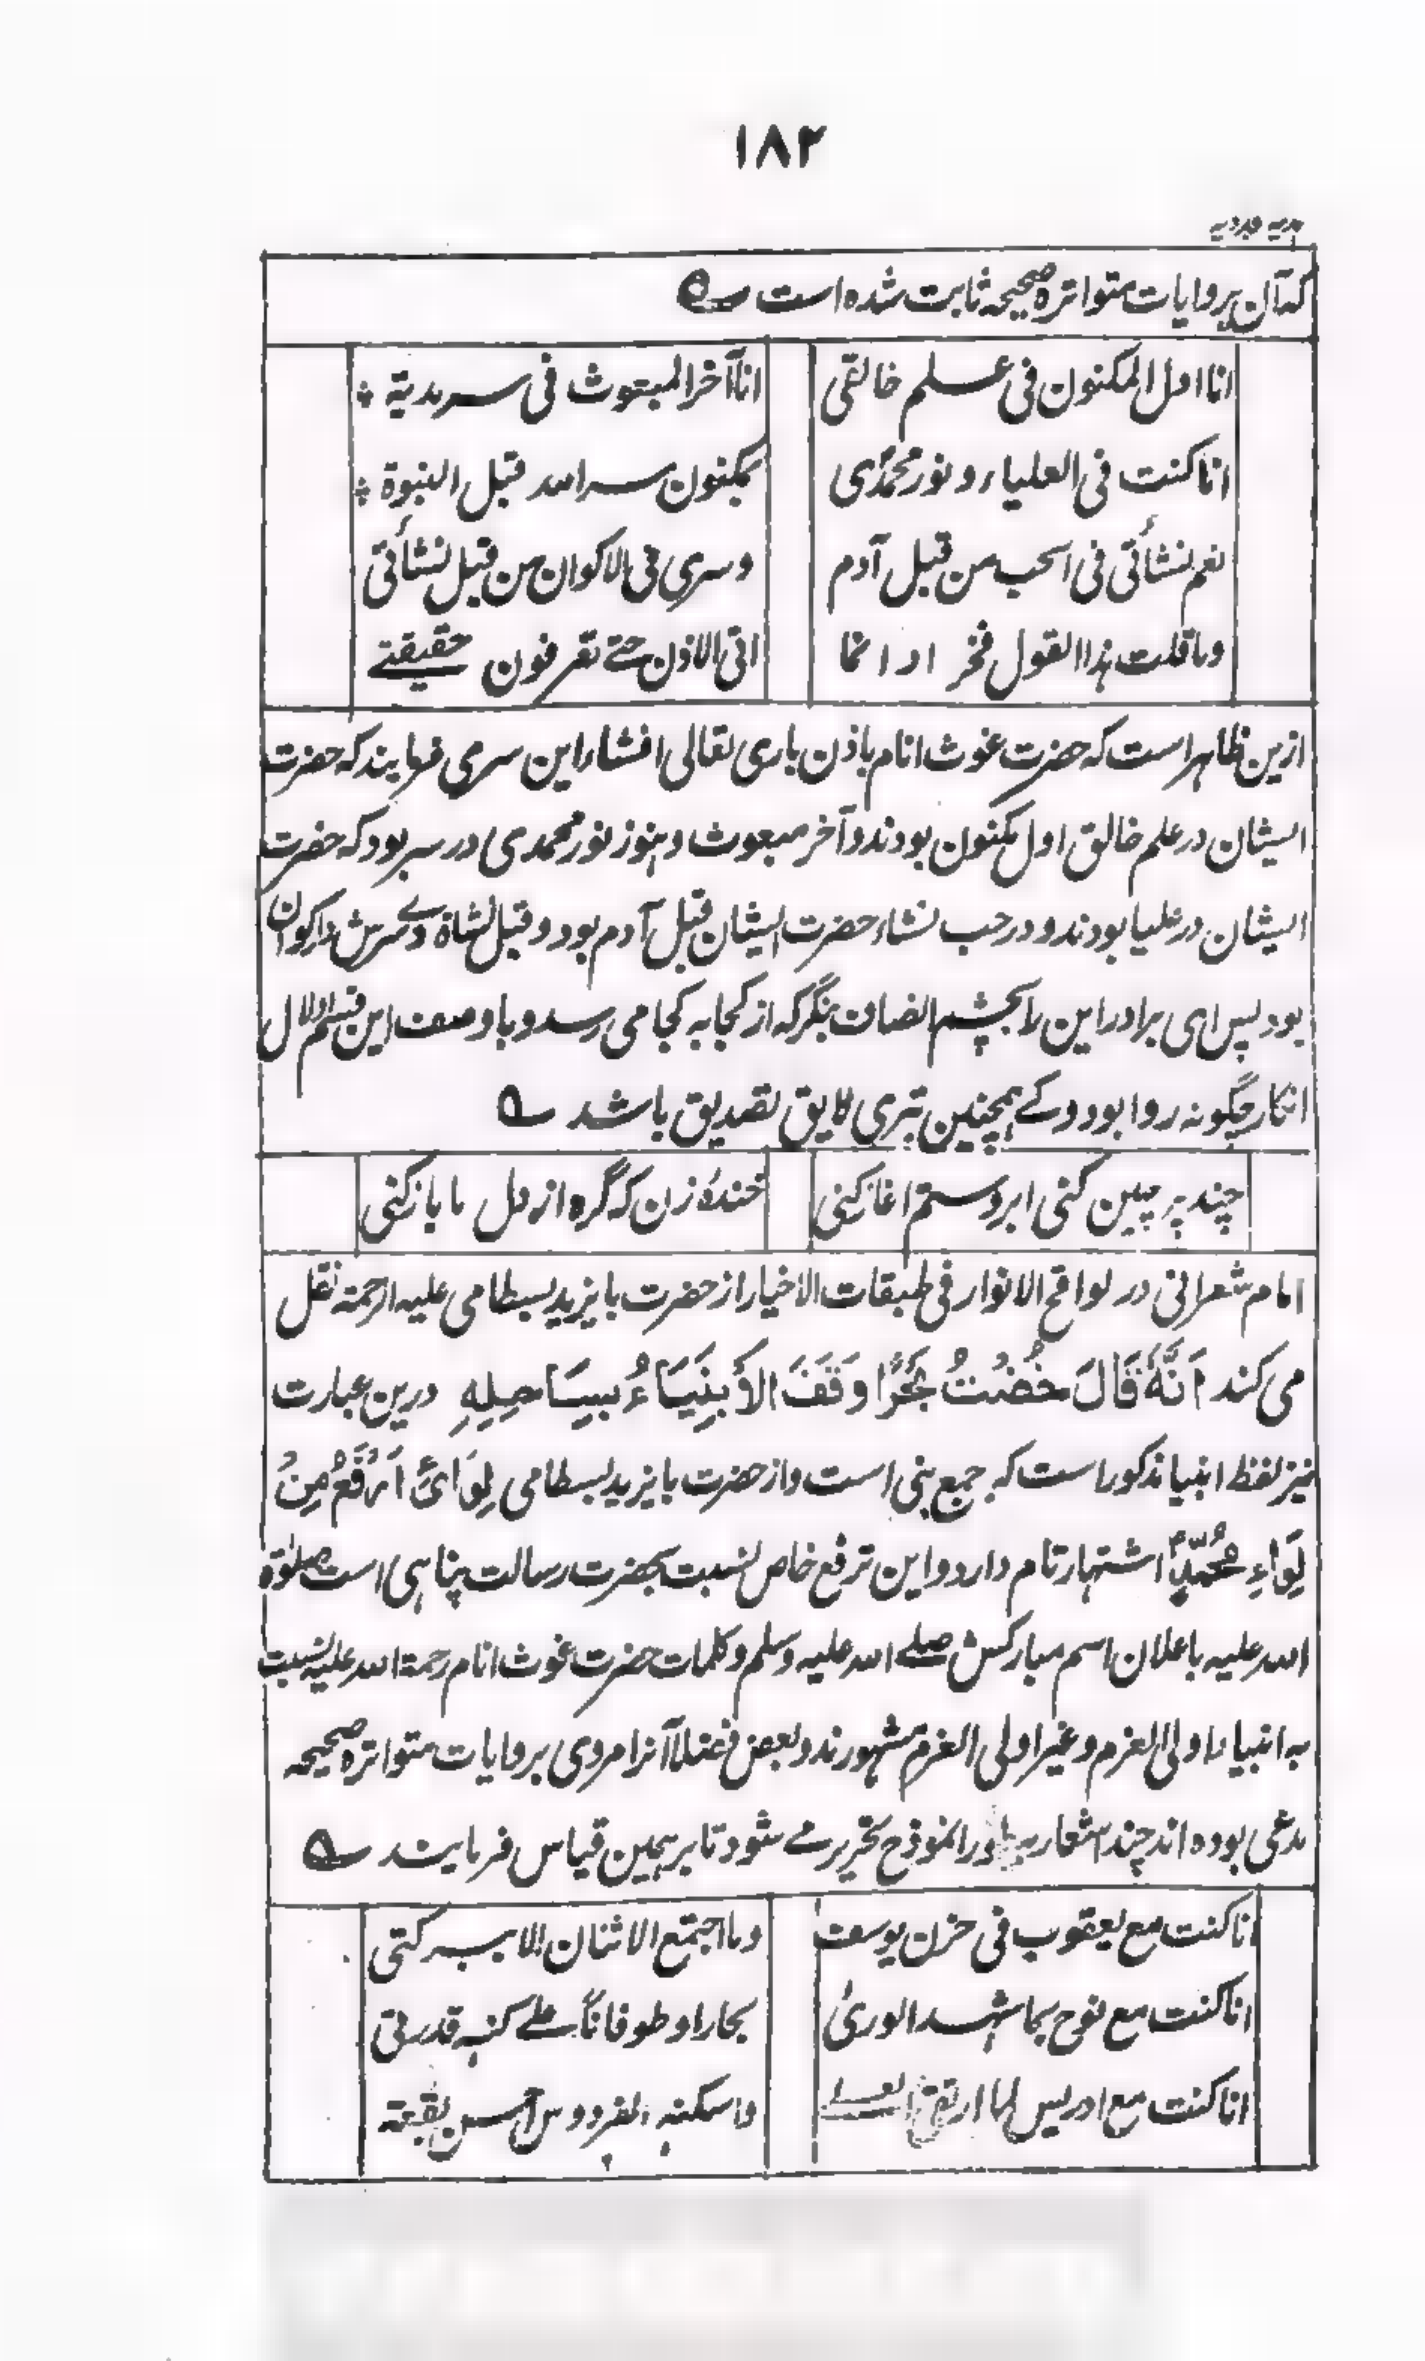 ۱۸۲
ہدیہ مجددیہ
کہ آن بروایات متواترہ صحیحہ ثابت شدہ است ؎
انا اول المکنون فی علم خالقی انا آخر المبعوث فی سرمدیة ٭
انا کنت فی العلیاء و نور محمدی بمکنون سر اللہ قبل النبوة ٭
نعم نشأتی فی الحب من قبل آدم وسری فی الاکوان من قبل نشأتی
وما قلت ہذا القول فخرا وانما اتی الاذن حتے تعرفون حقیقتے
ازین ظاہر است کہ حضرت غوث انام باذن باری تعالی افشاء این سر می فرمایند کہ حضرت
ایشان در علم خالق اول مکنون بودند و آخر مبعوث و ہنوز نور محمدی در سر بود کہ حضرت
ایشان در علیا بودند و در حب نشاء حضرت ایشان قبل آدم بود و قبل نشاة وے سرش در اکوان
بود پس ای برادر این را بچشم انصاف بنگر کہ از کجا بہ کجا می رسد و با وصف این قسم اولال
انکار چگونہ روا بود و کے ہمچنین تبری لایق تصدیق باشد ؎
چند پر چین کنی ابرو ستم اغاز کنی خندۂ زن کہ گرہ از دل ما باز کنی
امام شعرانی در لواقح الانوار فی طبقات الاخیار از حضرت بایزید بسطامی علیہ الرحمة نقل
می کند اَنَّهٗ قَالَ خُضْتُ بَحْرًا وَقَفَ الْاَنْبِيَاءُ بِسَاحِلِهٖ درین عبارت
نیز لفظ انبیا مذکور است کہ جمع نبی است و از حضرت بایزید بسطامی لِوَائِیْ اَرْفَعُ مِنْ
لِوَاءِ مُحَمَّدٍ اشتہار تام دارد و این ترفع خاص نسبت بحضرت رسالت پناہی است صلوٰة
اللہ علیہ باعلان اسم مبارکش صلے اللہ علیہ وسلم و کلمات حضرت غوث انام رحمة اللہ علیہ نسبت
بہ انبیاء اولی العزم و غیر اولی العزم مشہورند و بعض فضلا آنرا مروی بروایات متواترہ صحیحہ
مدعی بودہ اند چند اشعار بطور انموذج تحریر مے شود تا بر ہمین قیاس فرمایند ؎
انا کنت مع یعقوب فی حزن یوسف وما اجتمع الاثنان الا ببرکتی
انا کنت مع نوح بما شہد الوریٰ بحارا و طوفانا علے کف قدرتی
انا کنت مع ادریس لما ارتقی العلے واسکنہ الفردوس احسن بقعة